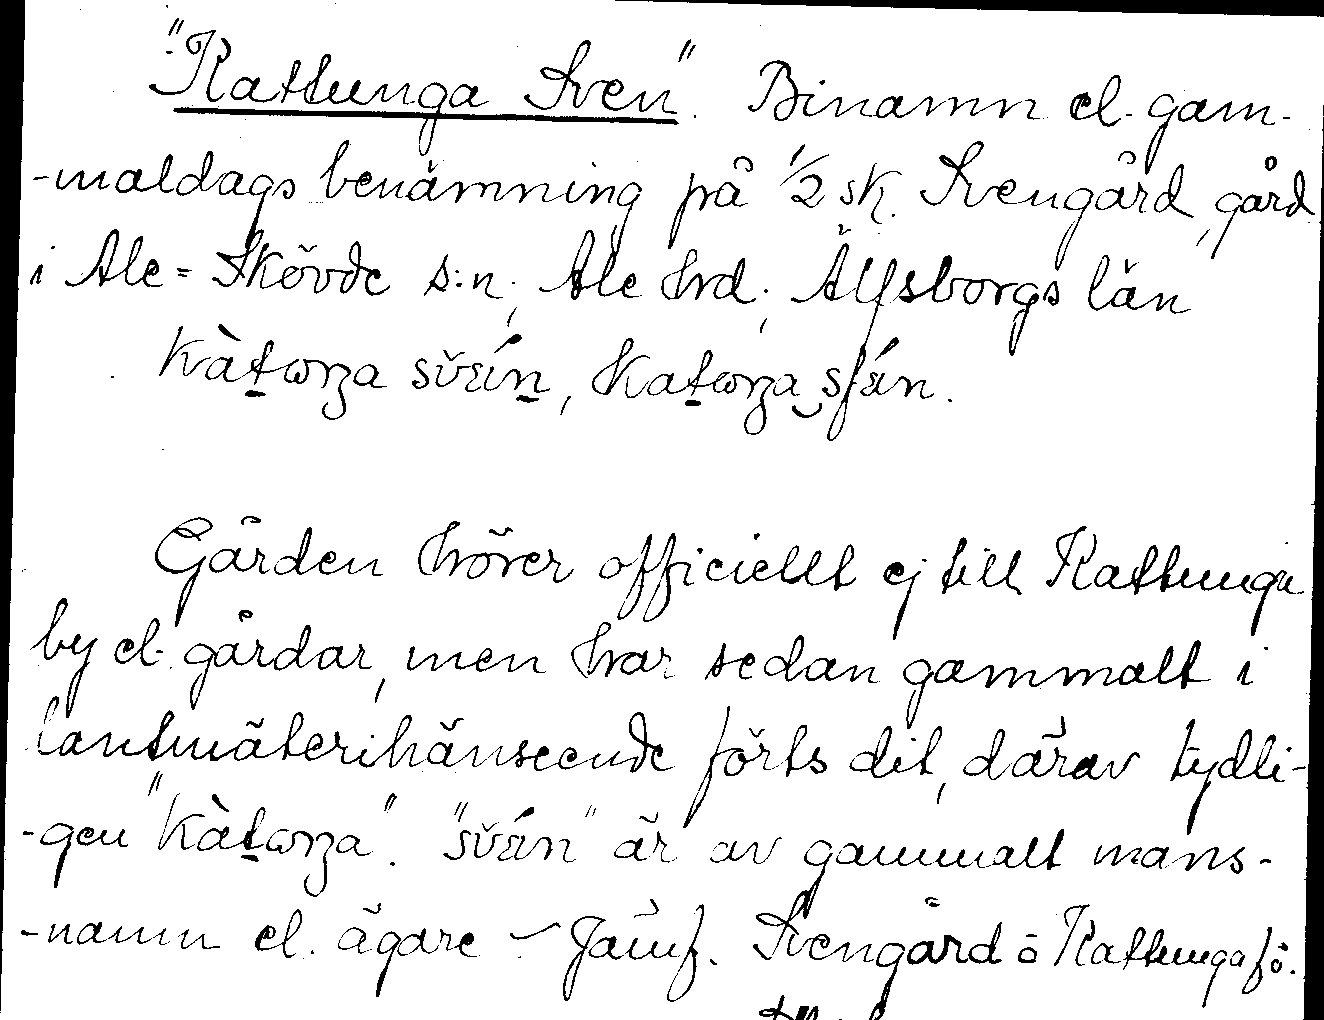 "Kattunga Sven". Binamn el. gam-
-maldags benämning på 1/2 sk. Svengård, gård
i Ale=Skövde s:n, Ale hrd, Älfsborgs län
kàt̠ωŋa svɛ́n̠, Kat̠ωŋa‿sfɛ́n.
Gården hörer officiellt ej till Kattunga
by el. gårdar, men har sedan gammalt i
lantmäterihänseende förts dit, därav tydli-
-gen "kàt̠ωŋa". "svɛ́n" är av gammalt mans-
-namn el. ägare – Jämf. Svengård o Kattunga fö.